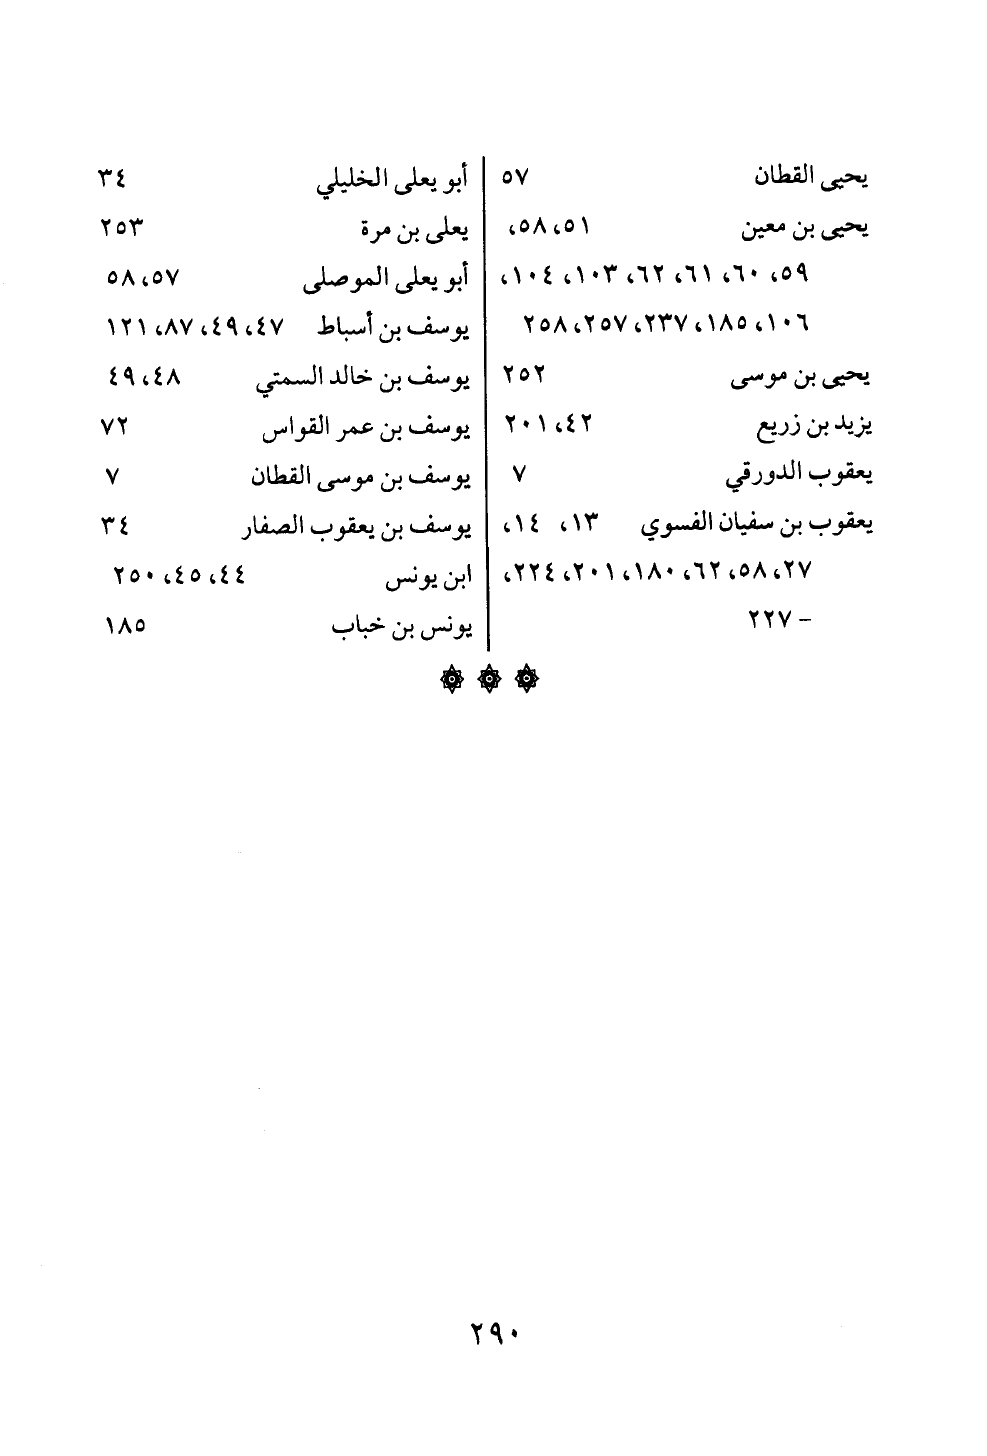 يحيى القطان ٥٧
يحيى بن معين ٥١، ٥٨،
٥٩، ٦٠، ٦١، ٦٢، ١٠٣، ١٠٤،
١٠٦، ١٨٥، ٢٣٧، ٢٥٧، ٢٥٨
يحيى بن موسى ٢٥٢
يزيد بن زريع ٤٢، ٢٠١
يعقوب الدورقي ٧
يعقوب بن سفيان الفسوي ١٣، ١٤،
٢٧، ٥٨، ٦٢، ١٨٠، ٢٠١، ٢٢٤،
– ٢٢٧
أبو يعلى الخليلي ٣٤
يعلى بن مرة ٢٥٣
أبو يعلى الموصلى ٥٧، ٥٨
يوسف بن أسباط ٤٧، ٤٩، ٨٧، ١٢١
يوسف بن خالد السمتي ٤٨، ٤٩
يوسف بن عمر القواس ٧٢
يوسف بن موسى القطان ٧
يوسف بن يعقوب الصفار ٣٤
ابن يونس ٤٤، ٤٥، ٢٥٠
يونس بن خباب ١٨٥
٢٩٠